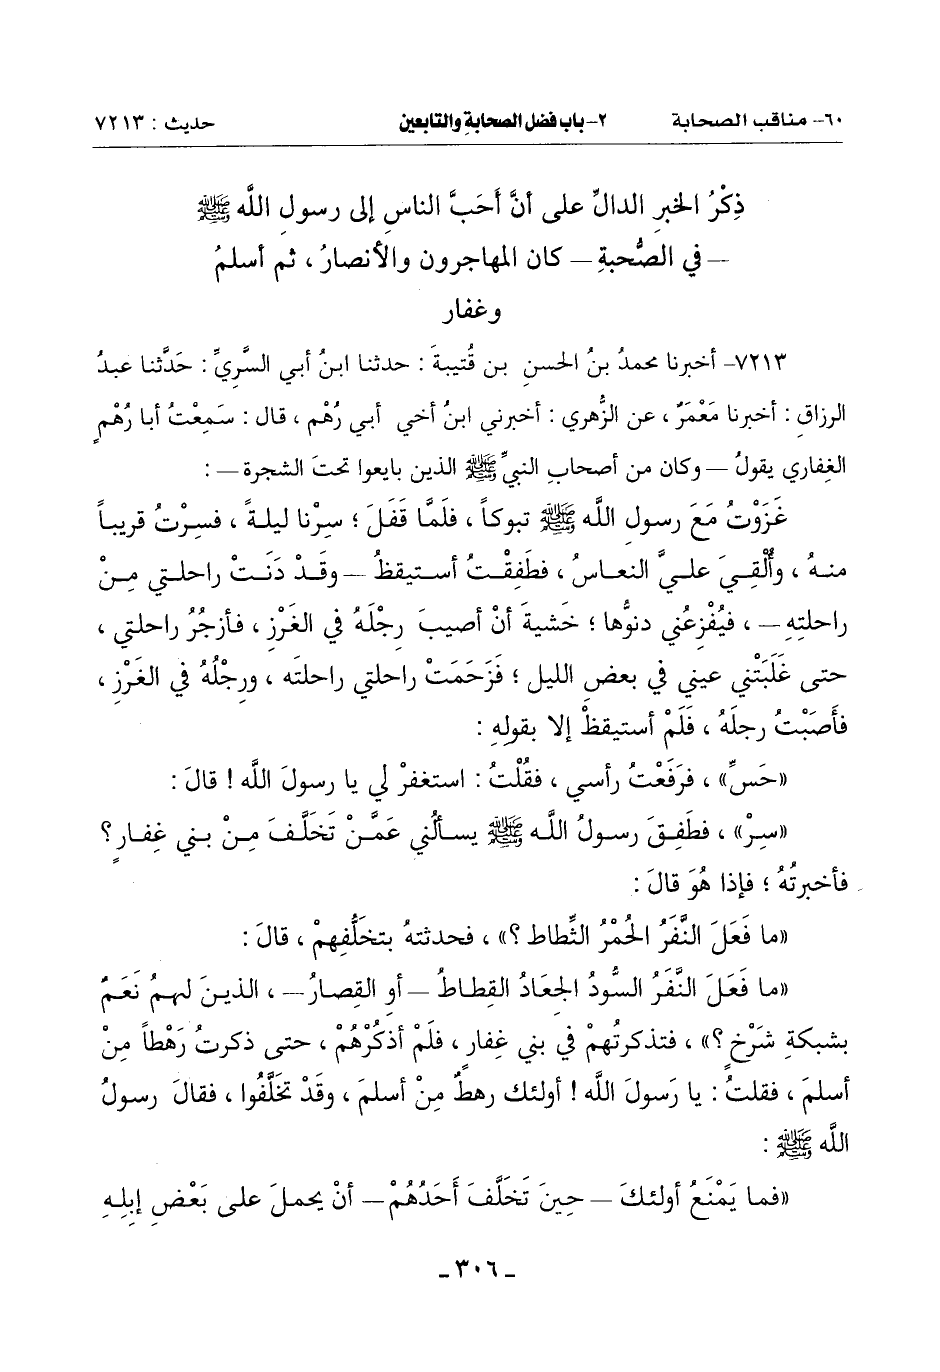 ٦٠- مناقب الصحابة ٢- باب فضل الصحابة والتابعين حديث : ٧٢١٣
ذِكْرُ الخبرِ الدالِّ على أنَّ أَحَبَّ الناسِ إلى رسولِ اللَّه ﷺ
– في الصُّحبةِ – كان المهاجرون والأنصارُ ، ثم أسلمُ
وغفار
٧٢١٣- أخبرنا محمدُ بنُ الحسنِ بن قُتيبةَ : حدثنا ابنُ أبي السَّريِّ : حَدَّثنا عبدُ
الرزاقِ : أخبرنا مَعْمَرٌ ، عن الزُّهري : أخبرني ابنُ أخي أبي رُهْم ، قال : سَمِعْتُ أبا رُهْمٍ
الغِفاري يقولُ – وكان من أصحابِ النبيِّ ﷺ الذين بايعوا تحتَ الشجرة – :
غَزَوْتُ مَعَ رسولِ اللَّه ﷺ تبوكاً ، فلَمَّا قَفَلَ ؛ سِرْنا ليلةً ، فسِرْتُ قريباً
منهُ ، وأُلْقِيَ عليَّ النعاسُ ، فطَفِقْتُ أستيقظُ – وقَدْ دَنَتْ راحلتي مِنْ
راحلتِهِ – ، فيُفْزعُني دنوُّها ؛ خَشيةَ أنْ أصيبَ رِجْلَهُ في الغَرْزِ ، فأزجُرُ راحلتي ،
حتى غَلَبَتْني عيني في بعضِ الليل ؛ فزَحَمَتْ راحلتي راحلتَه ، ورِجْلُهُ في الغَرْزِ ،
فأَصَبْتُ رجلَهُ ، فلَمْ أستيقظْ إلا بقولِهِ :
«حَسِّ» ، فرَفَعْتُ رأسي ، فقُلْتُ : استغفرْ لي يا رسولَ الله ! قالَ :
«سِرْ» ، فطَفِقَ رسولُ اللَّه ﷺ يسألُني عَمَّنْ تَخَلَّفَ مِنْ بني غِفارٍ ؟
فأخبرتُهُ ؛ فإذا هُوَ قالَ :
«ما فَعَلَ النَّفَرُ الحُمْرُ الثِّطاط ؟» ، فحدثتهُ بتخَلُّفِهمْ ، قالَ :
«ما فَعَلَ النَّفَرُ السُّودُ الجِعَادُ القِطاطُ – أو القِصارُ – ، الذينَ لهمُ نَعَمٌ
بشبكةِ شَرْخٍ ؟» ، فتذكرتُهمْ في بني غِفارٍ ، فلَمْ أذكُرْهُمْ ، حتى ذكرتُ رَهْطاً مِنْ
أسلمَ ، فقلتُ : يا رَسولَ الله ! أولئك رهطٌ مِنْ أسلمَ ، وقَدْ تخَلَّفُوا ، فقالَ رسولُ
اللَّه ﷺ :
«فما يَمْنَعُ أولئكَ – حِينَ تَخَلَّفَ أَحَدُهُمْ – أنْ يحملَ على بَعْضِ إبلِهِ
ـ ٣٠٦ ـ